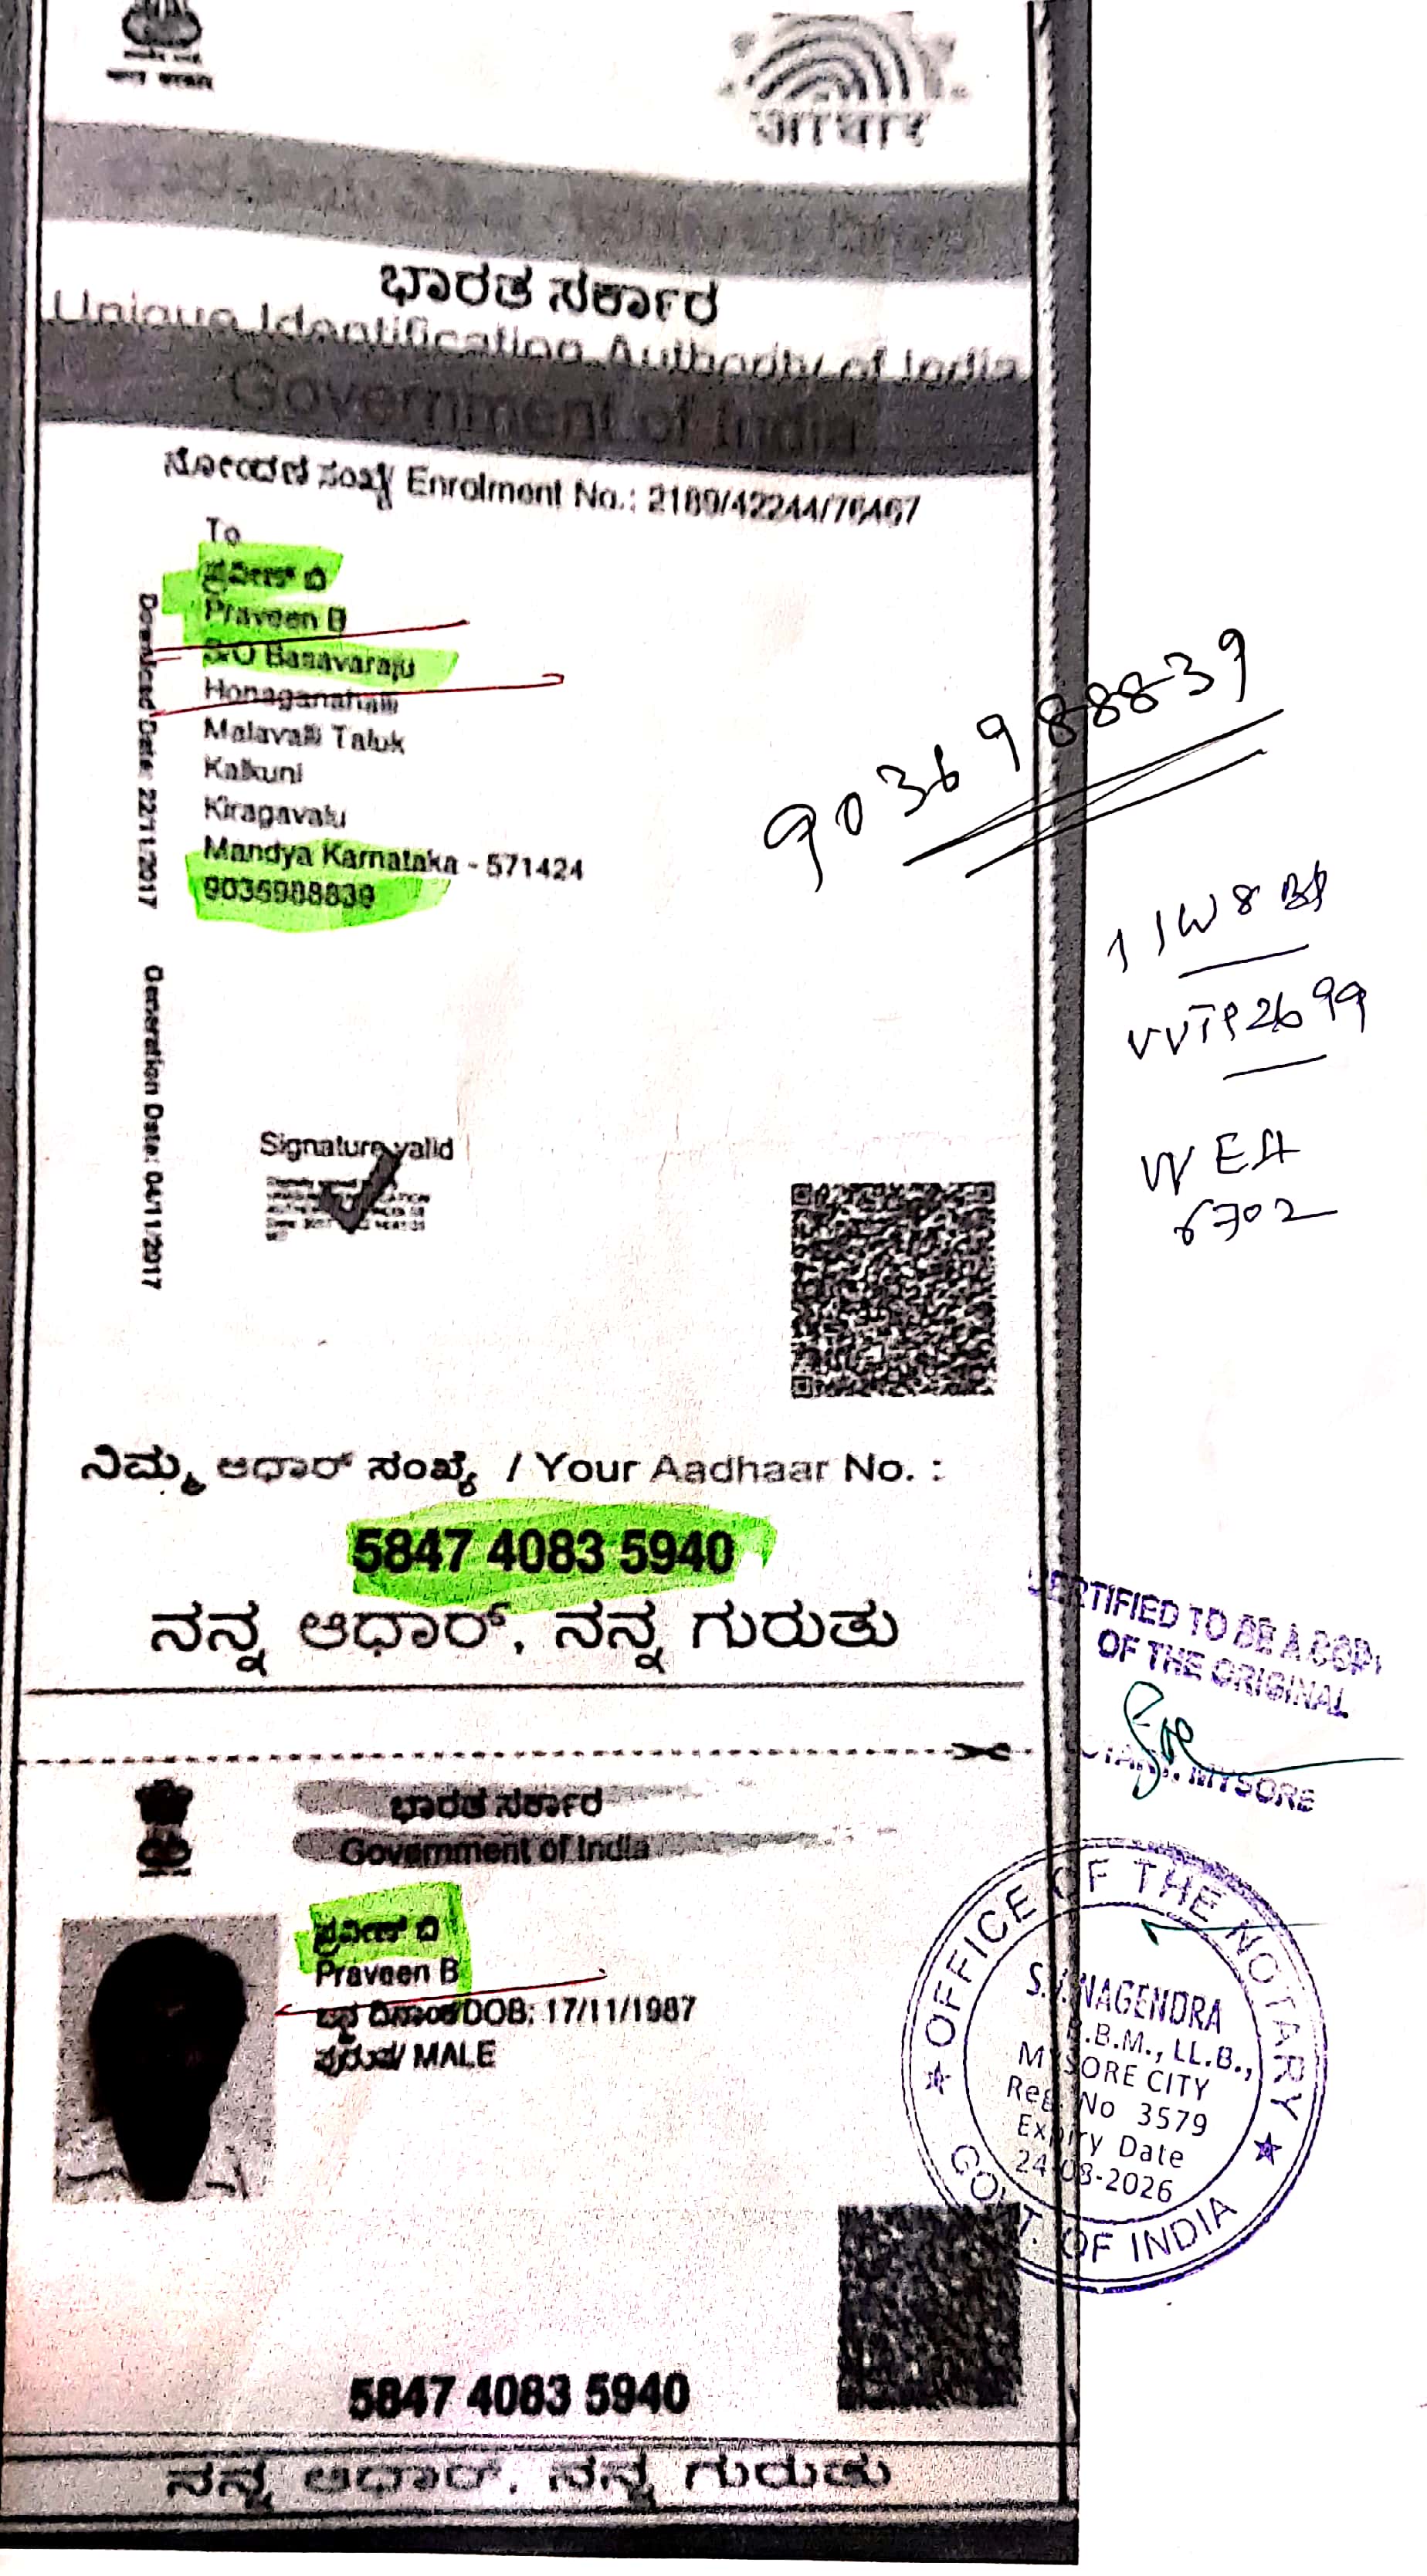 भारत सरकार
आधार
ಭಾರತ ಸರ್ಕಾರ
Unique Identification Authority of India
Government of India
ನೋಂದಣಿ ಸಂಖ್ಯೆ/ Enrolment No.: 2189/42244/76467
To
ಪ್ರವೀಣ್ ಬಿ
Praveen B
S/O Basavaraju
Honaganahalli
Malavalli Taluk
Kalkuni
Kiragavalu
Mandya Karnataka - 571424
9036988839
Download Date: 22/11/2017
Generation Date: 04/11/2017
9036988839
VVTP2699
WEA
6702
Signature valid
ನಿಮ್ಮ ಆಧಾರ್ ಸಂಖ್ಯೆ / Your Aadhaar No. :
5847 4083 5940
ನನ್ನ ಆಧಾರ್, ನನ್ನ ಗುರುತು
CERTIFIED TO BE A COPY
OF THE ORIGINAL
NOTARY, MYSORE
ಭಾರತ ಸರ್ಕಾರ
Government of India
ಪ್ರವೀಣ್ ಬಿ
Praveen B
ಜನ್ಮ ದಿನಾಂಕ/DOB: 17/11/1987
ಪುರುಷ/ MALE
OFFICE OF THE NOTARY
S.J. NAGENDRA
B.B.M., LL.B.,
MYSORE CITY
Reg. No 3579
Expiry Date
24-08-2026
GOVT. OF INDIA
5847 4083 5940
ನನ್ನ ಆಧಾರ್, ನನ್ನ ಗುರುತು